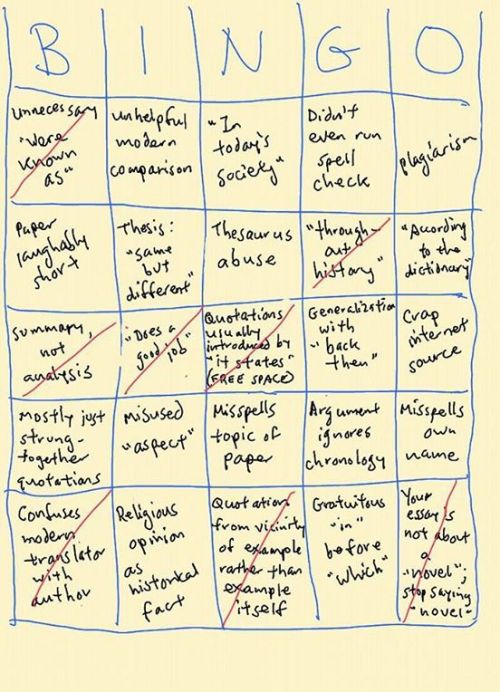 B I N G O
unnecessary
"were
known
as"
unhelpful
modern
comparison
"In
today's
society"
Didn't
even run
spell
check
plagiarism
Paper
laughably
short
Thesis:
"same
but
different"
Thesaurus
abuse
"through-
out
history"
"According
to the
dictionary"
summary,
not
analysis
"Does a
good job"
Quotations
usually
introduced by
"it states"
(FREE SPACE)
Generalization
with
"back
then"
Crap
internet
source
Mostly just
strung-
together
quotations
Misused
"aspect"
Misspells
topic of
paper
Argument
ignores
chronology
Misspells
own
name
Confuses
modern
translator
with
author
Religious
opinion
as
historical
fact
Quotation
from vicinity
of example
rather than
example
itself
Gratuitous
"in"
before
"which"
Your
essay is
not about
a
"novel";
stop saying
"novel"